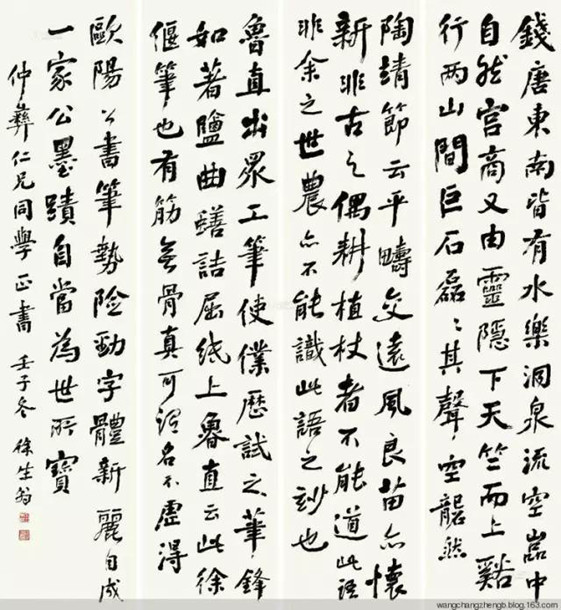 錢唐東南皆有水樂洞泉流空巖中
自然宮商又由靈隱下天竺而上谿
行两山間巨石磊〻其聲空礲然
陶靖節云平疇交遠風良苗亦懷
新非古之偶耕植杖者不能道此語
非余之世農亦不能識此語之玅也
魯直出眾工筆使僕歷試之筆鋒
如著鹽曲蟮詰屈纸上魯直云此徐
偃筆也有筋無骨真可謂名不虛得
歐陽公書筆勢險勁字體新麗自成
一家公墨蹟自當為世所寶
仲彝仁兄同學正書 壬子冬 徐生翁
wangchangzhengb.blog.163.com